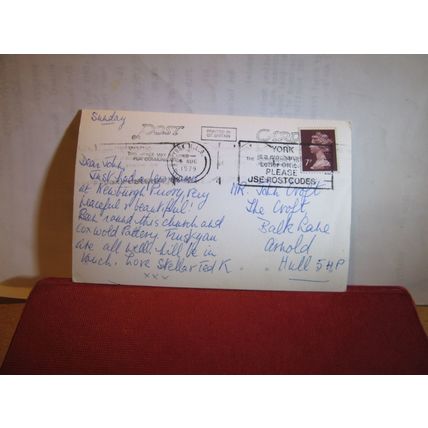 Sunday
POST
CARD
PRINTED IN
GT. BRITAIN
AUG
1979
YORK
PLEASE
USE POSTCODES
7
Dear John,
Just had a
at Newburgh Priory very
peaceful & beautiful.
Been 'round this church and
Coxwold Pottery. Trust you
are all well. Will be in
touch. Love Stella & Ted K.
xxx
Mr. John
The Croft,
Balk Lane
Arnold
Hull 5HP